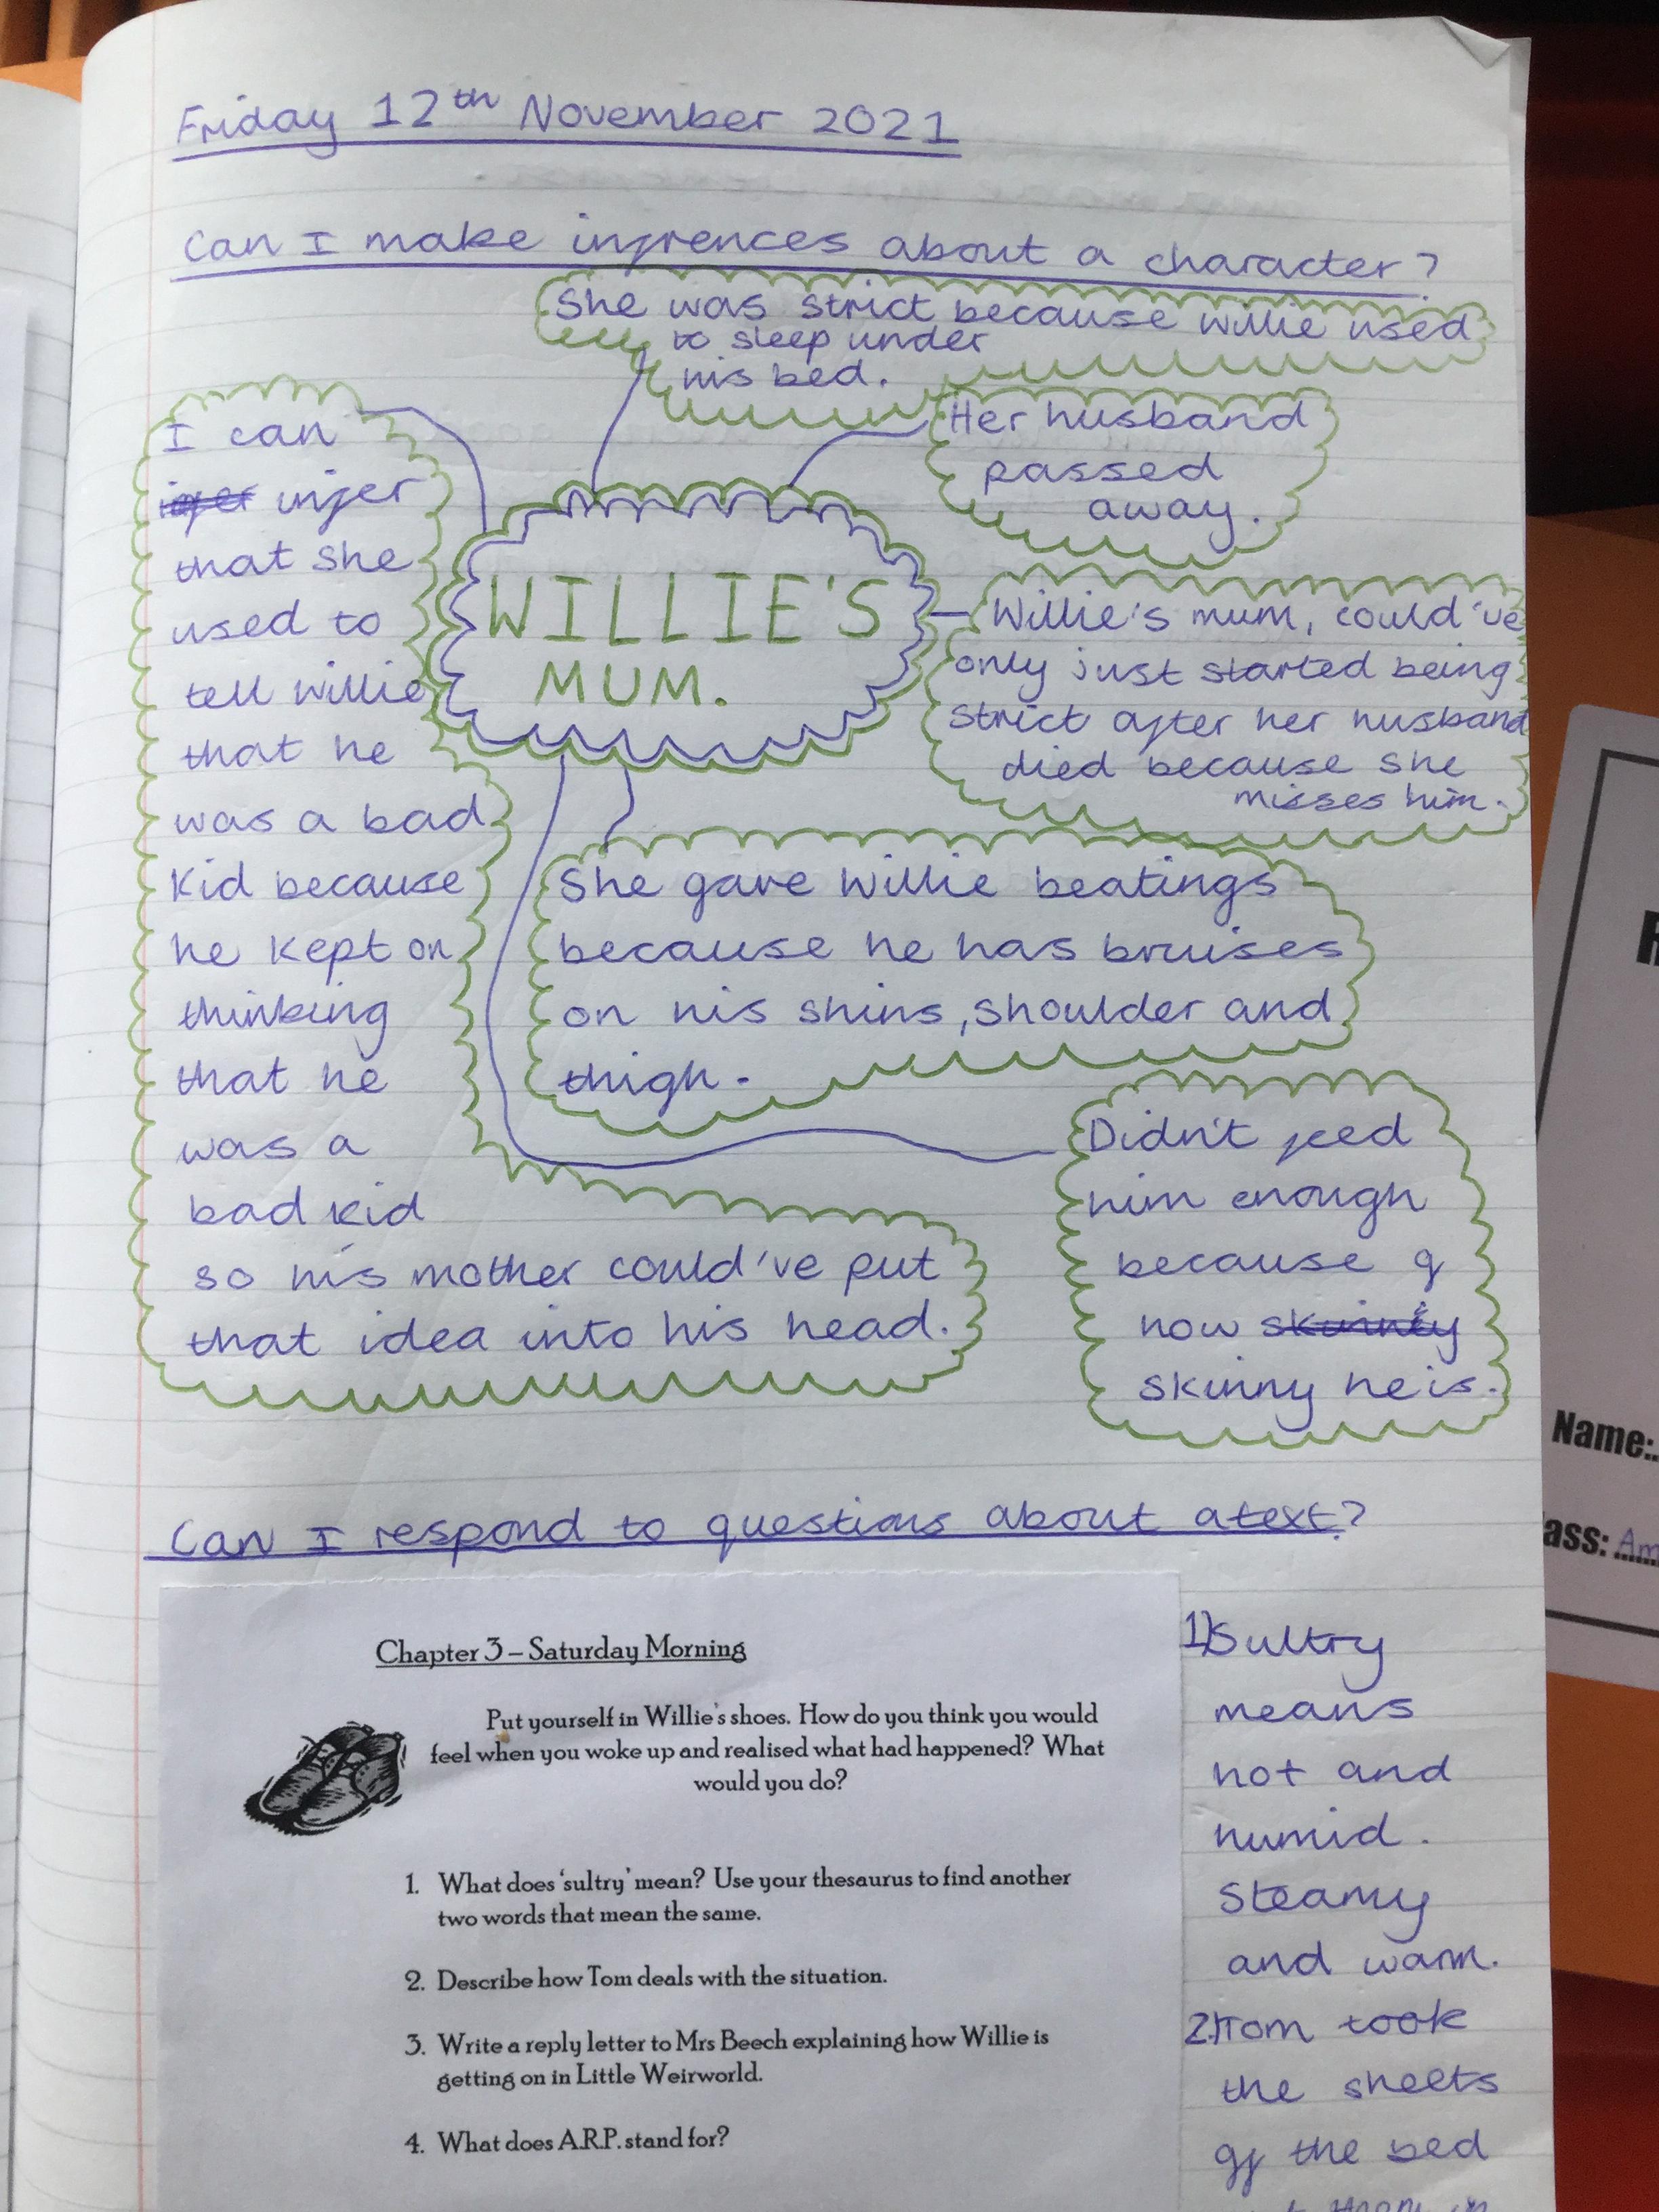 Friday 12th November 2021
Can I make infrences about a character?
She was strict because willie used
to sleep under
his bed.
Her husband
passed
away.
I can
infer
that she
used to
tell willie
that he
was a bad
kid because
he kept on
thinking
that he
was a
bad kid
so his mother could've put
that idea into his head.
WILLIE'S
MUM.
Willie's mum, could've
only just started being
strict after her husband
died because she
misses him.
She gave Willie beatings
because he has bruises
on his shins, shoulder and
thigh.
Didn't feed
him enough
because of
how skinny
skinny he is.
Can I respond to questions about a text?
Chapter 3 – Saturday Morning
Put yourself in Willie's shoes. How do you think you would
feel when you woke up and realised what had happened? What
would you do?
1. What does 'sultry' mean? Use your thesaurus to find another
two words that mean the same.
2. Describe how Tom deals with the situation.
3. Write a reply letter to Mrs Beech explaining how Willie is
getting on in Little Weirworld.
4. What does A.R.P. stand for?
1) Sultry
means
hot and
humid.
Steamy
and warm.
2) Tom took
the sheets
off the bed
Name:
ass: Am